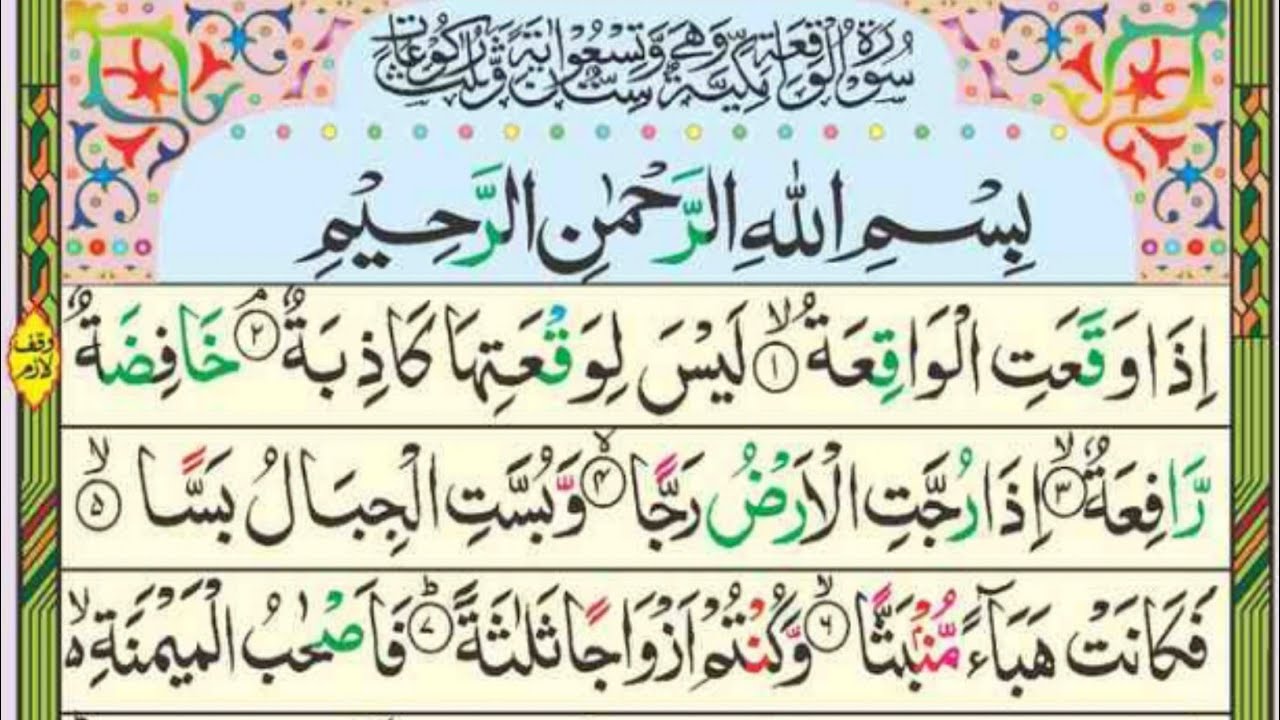 سُوْرَةُ الْوَاقِعَةِ مَكِّيَّةٌ وَّهِيَ سِتٌّ وَّتِسْعُوْنَ اٰيَةً وَّثَلٰثُ رُكُوْعَاتٍ
بِسْمِ اللّٰهِ الرَّحْمٰنِ الرَّحِيْمِ
اِذَا وَقَعَتِ الْوَاقِعَةُ ۙ‏﴿۱﴾ لَيْسَ لِوَقْعَتِهَا كَاذِبَةٌ ۘ‏﴿۲﴾ خَافِضَةٌ
وقف لازم
رَّافِعَةٌ ۙ‏﴿۳﴾ اِذَا رُجَّتِ الْاَرْضُ رَجًّا ۙ‏﴿۴﴾ وَّبُسَّتِ الْجِبَالُ بَسًّا ۙ‏﴿۵﴾
فَكَانَتْ هَبَآءً مُّنْۢبَثًّا ۙ‏﴿۶﴾ وَّكُنْتُمْ اَزْوَاجًا ثَلٰثَةً ؕ‏﴿۷﴾ فَاَصْحٰبُ الْمَيْمَنَةِ ۙ۬